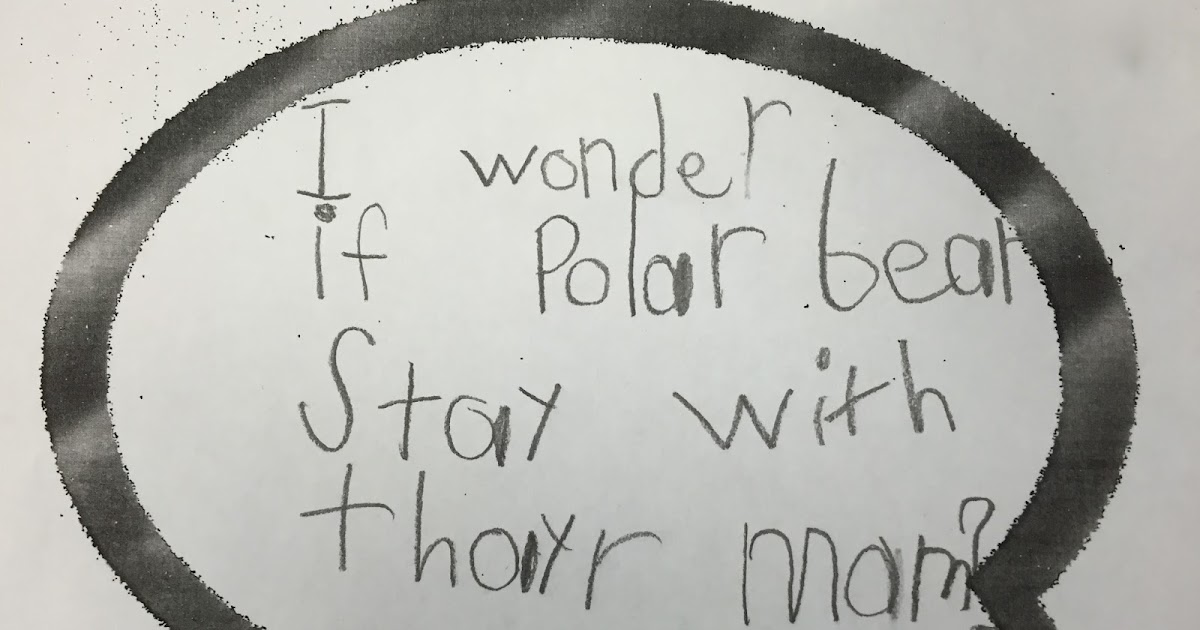 I wonder
if Polar bear
Stay with
thayr mam?